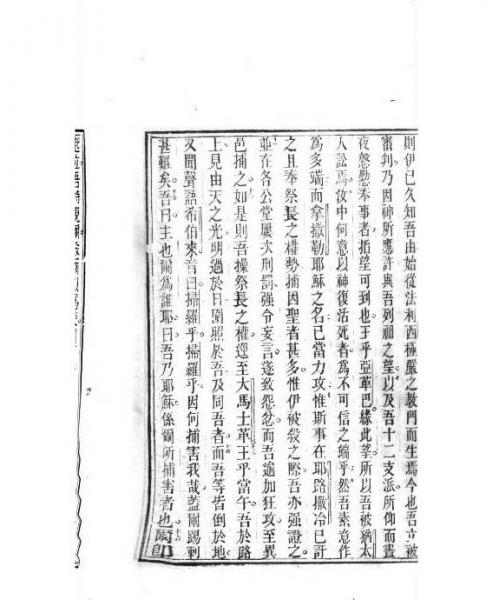 則伊已久知吾由始從法利西極嚴之教門而生焉今也吾立被
審判乃因神所應許與吾列祖之望以及吾十二支派所仰而晝
夜慇懃奉事者指望可到也王乎亞革巴緣此望所以吾被猶太
人訟焉汝中何意以神復活死者為不可信之端乎然吾素意作
為多端而拿撒勒耶穌之名已當力攻惟斯事在耶路撒冷已訐
之且奉祭長之權勢捕因聖者甚多惟伊被殺之際吾亦强證之
並在各公堂屢次刑罰强令妄言遂致怨忿而吾逾加狂攻至異
邑捕之如是則吾操祭長之權逕至大馬士革王乎當午吾於路
上見由天之光明過於日圍照於吾及同吾者而吾等皆倒於地
又聞聲語希伯來音曰掃羅乎掃羅乎因何捕害我哉蓋爾踢刺
甚難矣吾曰主也爾為誰耶曰吾乃耶穌係爾所捕害者也爾即